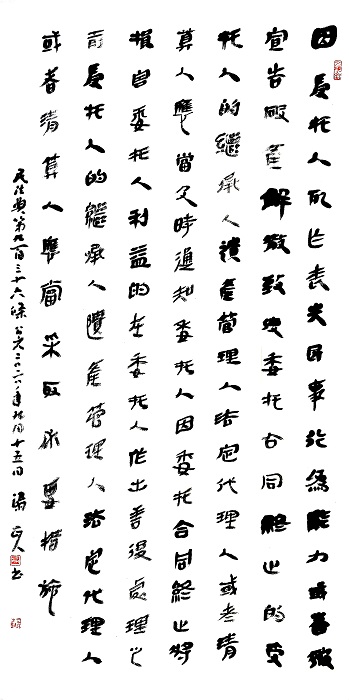 因受托人死亡喪失民事行為能力或者被
宣告破產解散致使委托合同終止的受
托人的繼承人遺產管理人法定代理人或者清
算人應當及時通知委托人因委托合同終止將
損害委托人利益的在委托人作出善後處理之
前受托人的繼承人遺產管理人法定代理人
或者清算人應當采取必要措施
民法典第九百三十六條公元二〇二一年月十五日书